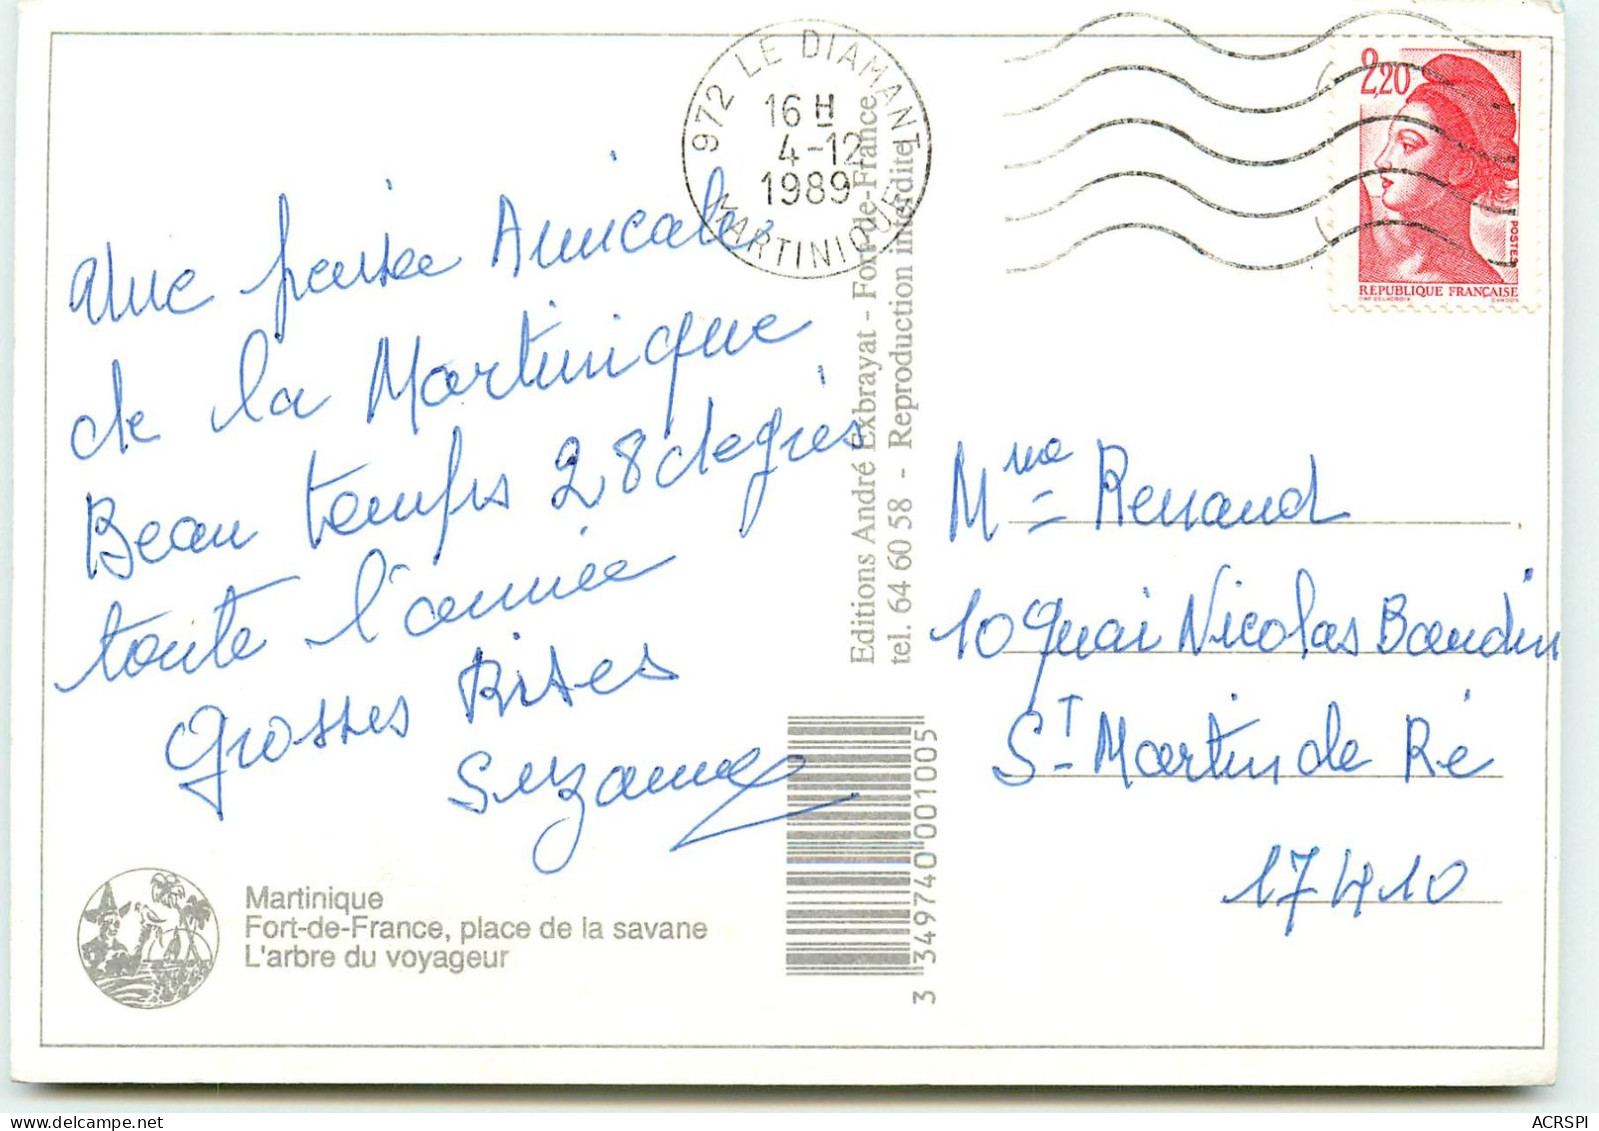 Une pensée Amicale
de la Martinique
Beau temps 28 degrés
toute l'année
Grosses Bises
Suzanne
Martinique
Fort-de-France, place de la savane
L'arbre du voyageur
972 LE DIAMANT
16 H
4-12
1989
MARTINIQUE
Editions André Exbrayat - Fort-de-France
tel. 64 60 58 - Reproduction interdite
3 349740 001005
2,20
POSTES
REPUBLIQUE FRANÇAISE
D'AP DELACROIX GANDON
Mme Renaud
10 Quai Nicolas Baudin
St Martin de Ré
17410
ACRSPI